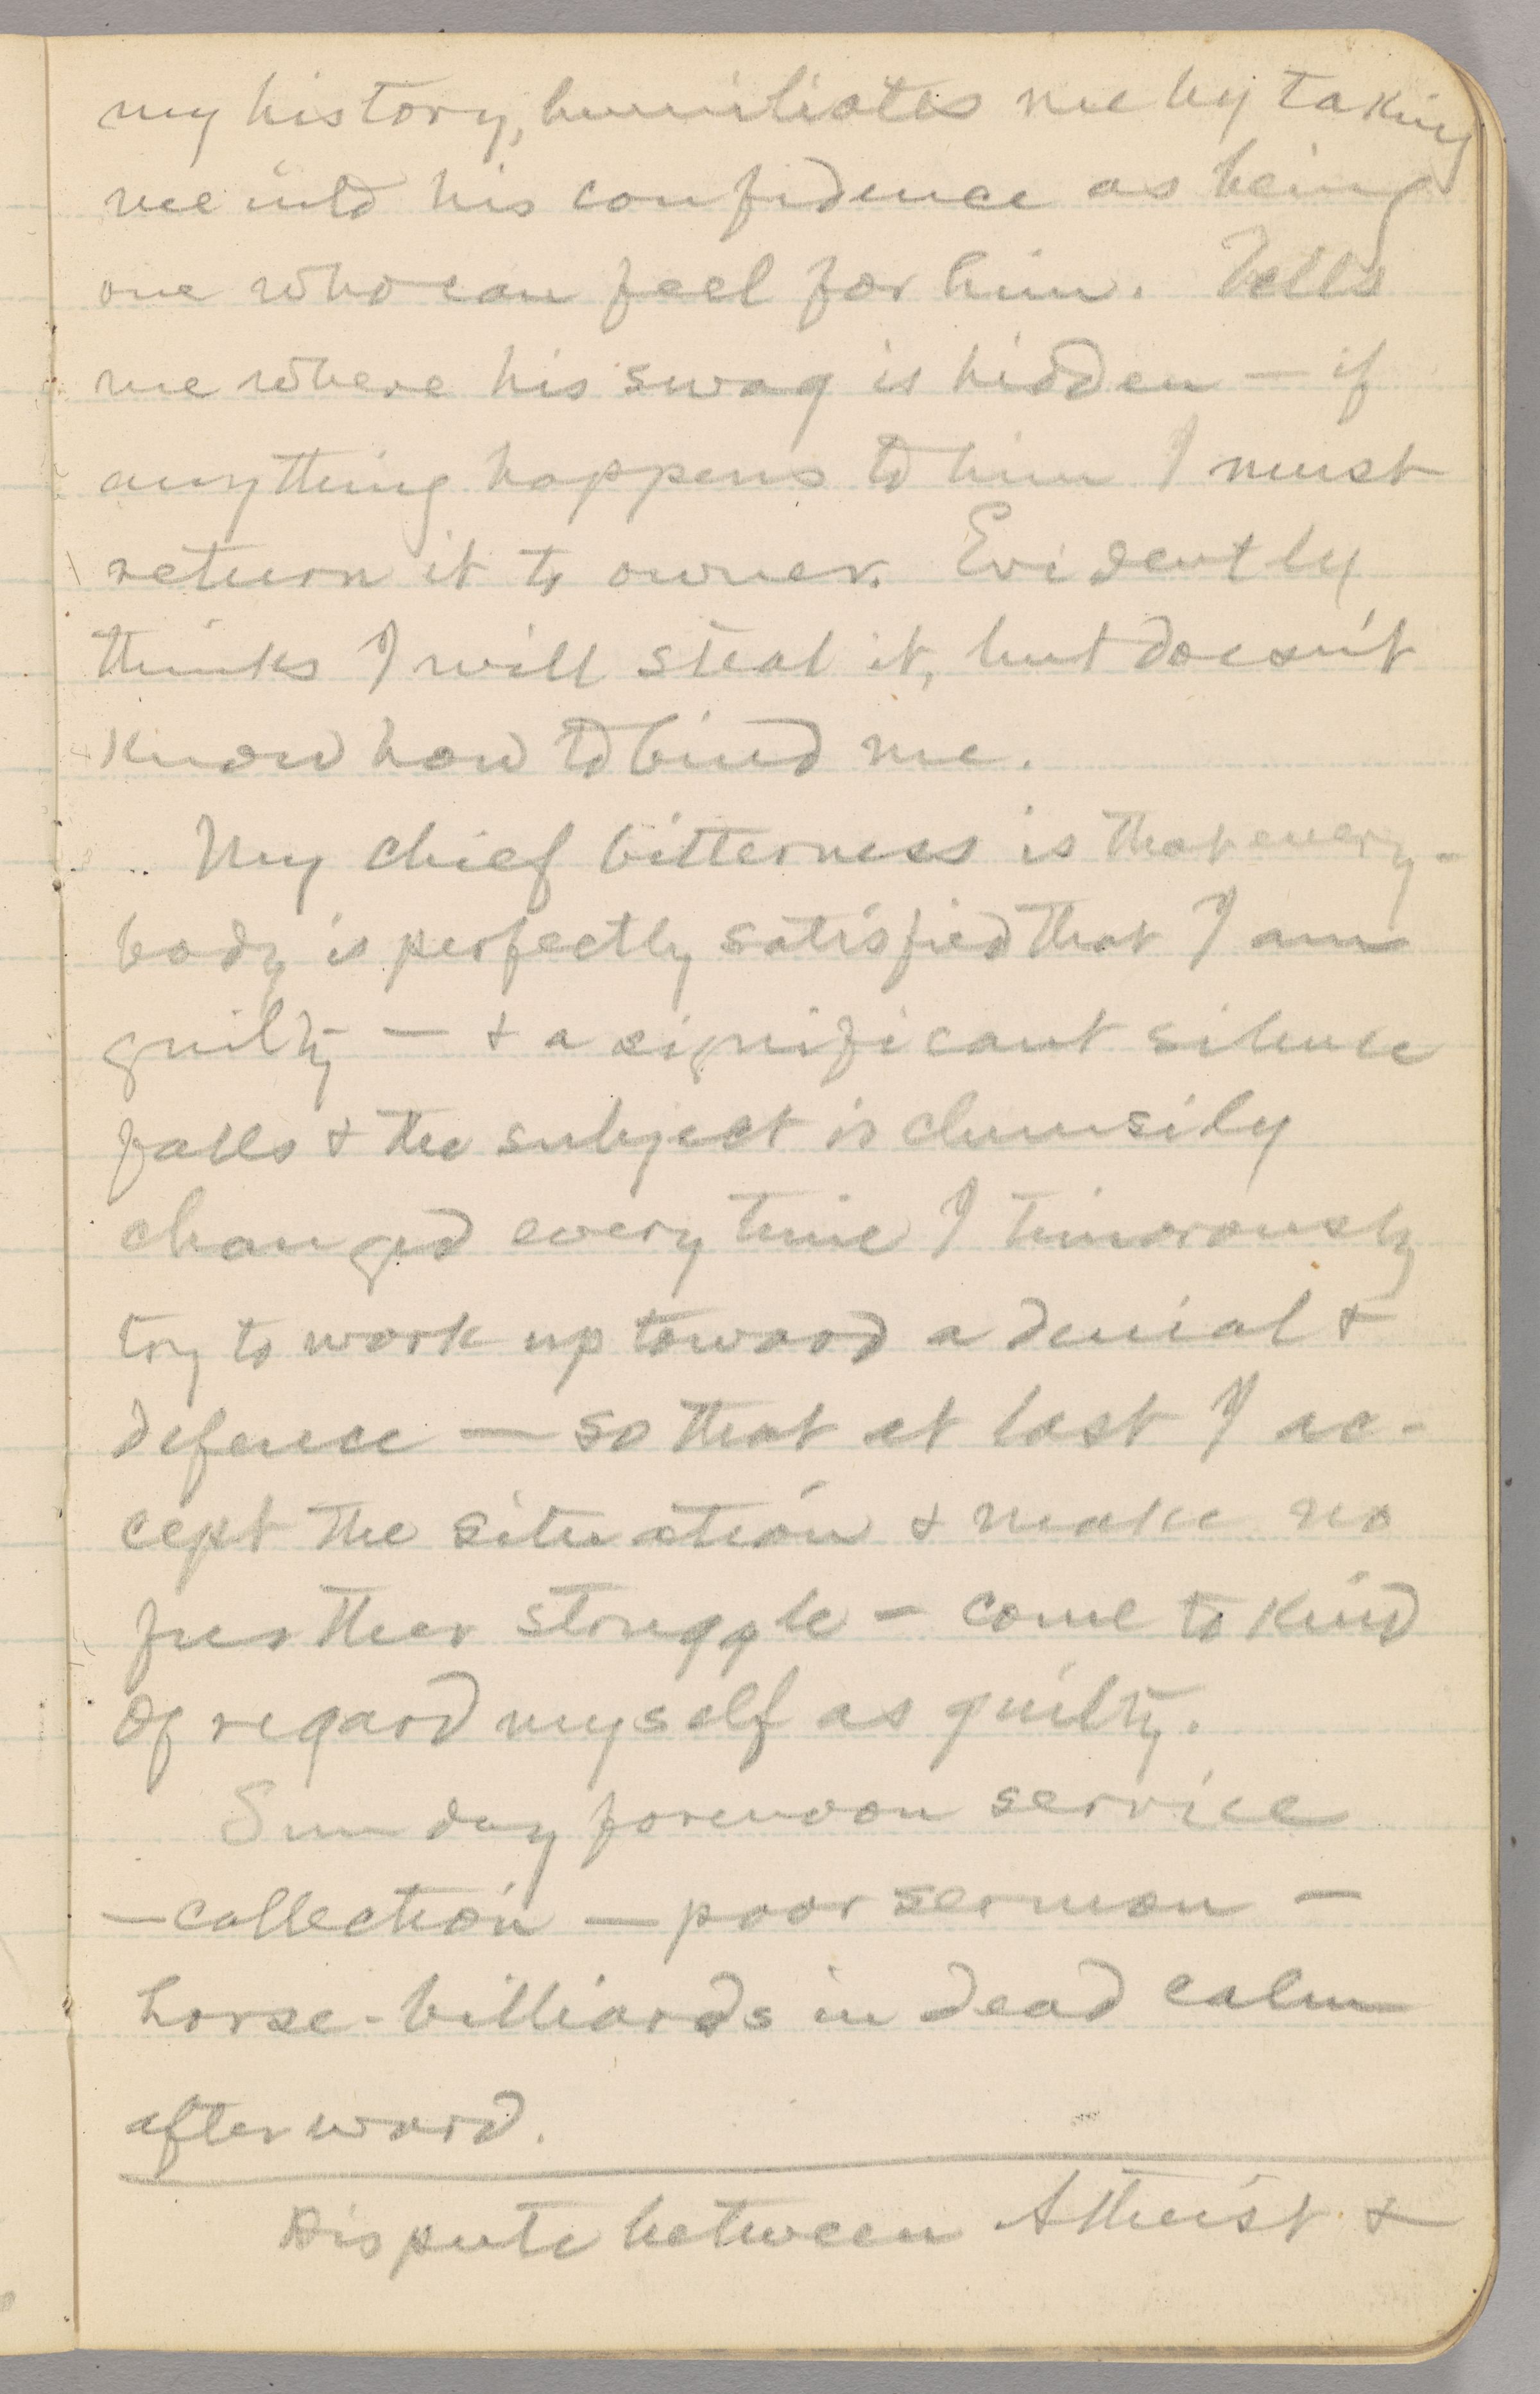 my history, humiliates me by taking
me into his confidence as being
one who can feel for him. Tells
me where his swag is hidden — if
anything happens to him I must
return it to owner. Evidently
thinks I will steal it, but doesn't
know how to bind me.
My chief bitterness is that every-
body is perfectly satisfied that I am
guilty — & a significant silence
falls & the subject is clumsily
changed every time I timorously
try to work up toward a denial &
defence — so that at last I ac-
cept the situation & make no
further struggle — come to kind
of regard myself as guilty.
Sunday forenoon service
— collection — poor sermon —
horse-billiards in dead calm
afterward.
Dispute between Atheist &